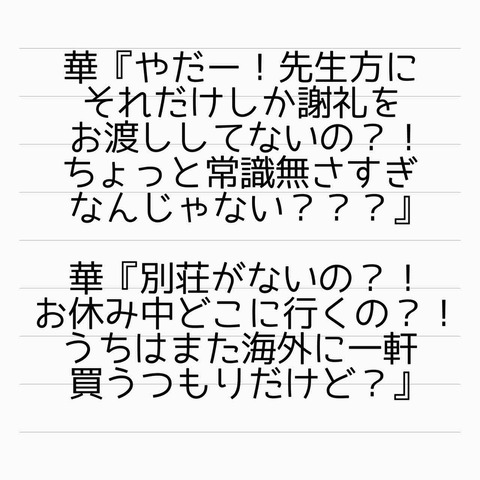 華『やだー！先生方に
それだけしか謝礼を
お渡ししてないの？！
ちょっと常識無さすぎ
なんじゃない？？？』
華『別荘がないの？！
お休み中どこに行くの？！
うちはまた海外に一軒
買うつもりだけど？』